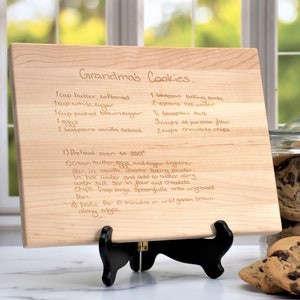 Grandma's Cookies
1 cup butter, softened
1 cup white sugar
1 cup packed brown sugar
2 eggs
2 teaspoons vanilla extract
1 teaspoon baking soda
2 teaspoons hot water
½ teaspoon salt
3 cups all purpose flour
2 cups chocolate chips
1) Preheat oven to 350°
2) Cream butter, eggs, and sugar together.
Stir in vanilla, dissolve baking powder
in hot water and add to batter along
with salt. Stir in flour and chocolate
chips. Drop large spoonfuls onto ungreased
pan.
3) bake for 10 minutes or until golden brown
along edges.